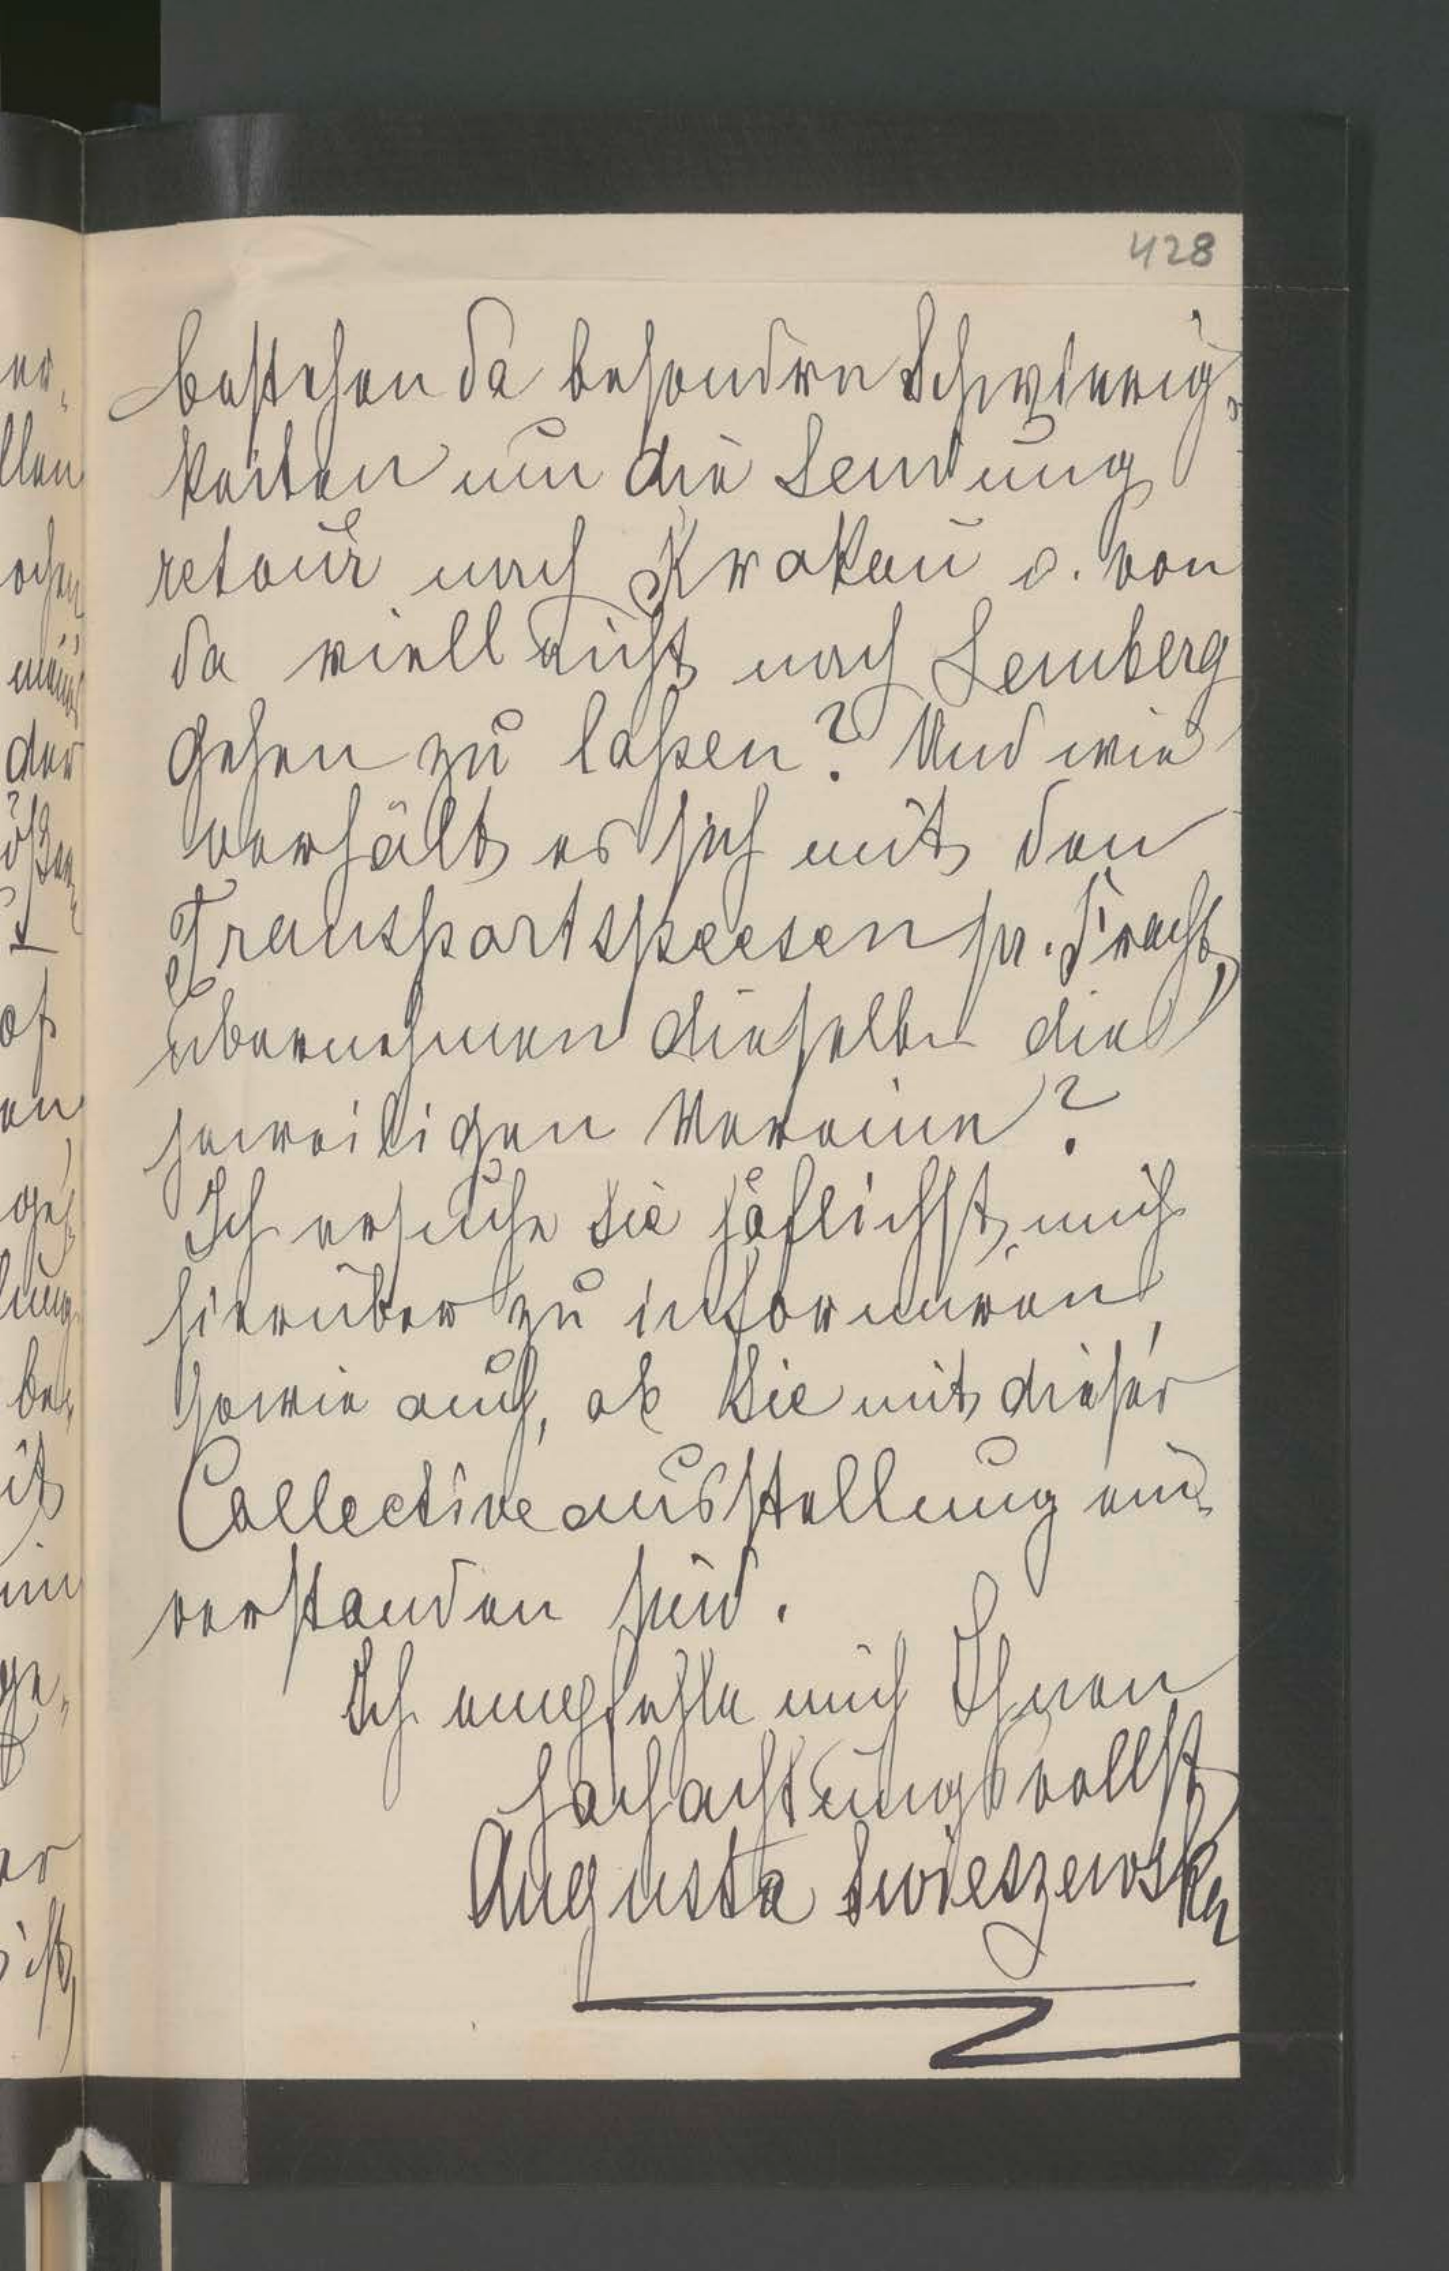 428
bestehen da besondere Schwierig-
keiten um die Sendung
retour nach Krakau o. von
da vielleicht nach Lemberg
gehen zu laßen? Und wie
verhält es sich mit den
Transportspeesen pr. Fracht,
übernehmen dieselben die
jeweiligen Vereine?
Ich ersuche Sie höflichst, mich
hierüber zu informiren,
sowie auch, ob Sie mit dieser
Collectiveausstellung ein-
verstanden sind.
Ich empfehle mich Ihnen
hochachtungsvollst
Augusta Swieszewsky